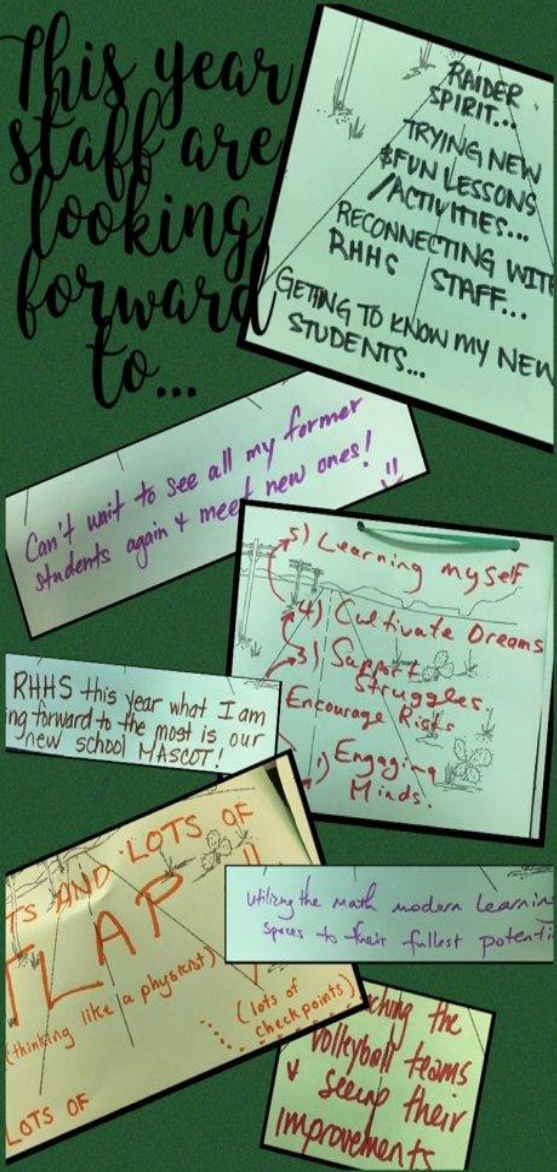 This year
staff are
looking
forward
to...
RAIDER
SPIRIT...
TRYING NEW
&FUN LESSONS
/ACTIVITIES...
RECONNECTING WITH
RHHS STAFF...
GETTING TO KNOW MY NEW
STUDENTS...
Can't wait to see all my former
students again & meet new ones!
5) Learning myself
4) Cultivate Dreams
3) Support
Struggles,
Encourage Risks
1) Engaging
Minds.
RHHS this year what I am
ing forward to the most is our
new school MASCOT!
TS AND LOTS OF
TLAP
(thinking like a physicist)
(lots of
checkpoints)
LOTS OF
utilizing the math modern Learnin
spaces to their fullest potenti
ching the
volleyball teams
& seeing their
improvements